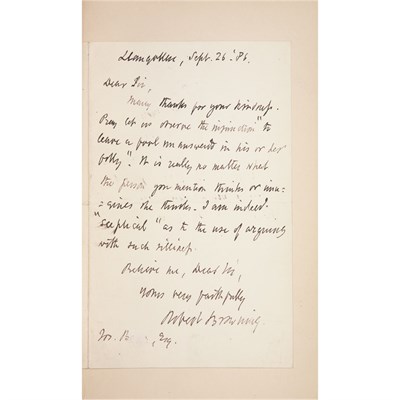 Llangollen, Sept. 26. '86.
Dear Sir,
Many thanks for your kindness.
Pray let us observe the injunction "to
leave a fool unanswered in his or her
folly". It is really no matter what
the person you mention thinks or ima=
=gines she thinks. I am indeed
"sceptical" as to the use of arguing
with such silliness.
Believe me, Dear Sir,
Yours very faithfully
Robert Browning.
Esq.